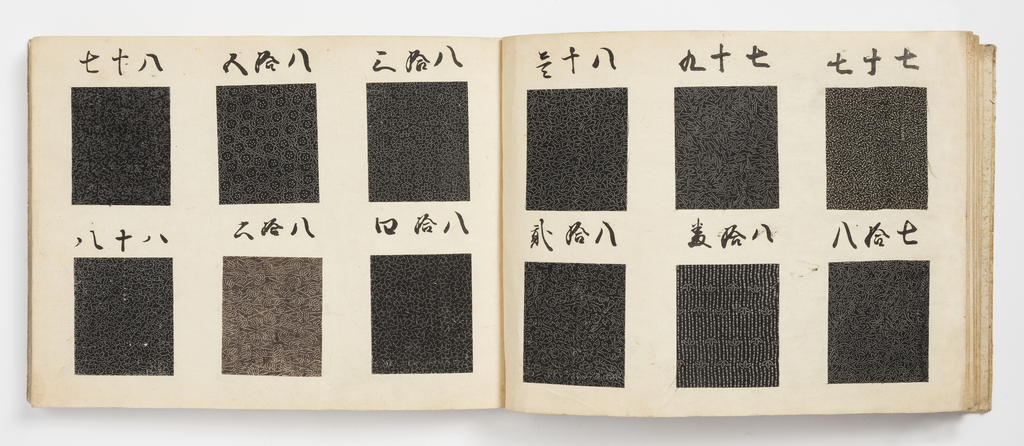 七十七
七拾八
七十九
八拾
八十壱
八拾弐
八拾三
八拾四
八拾五
八拾六
八十七
八十八